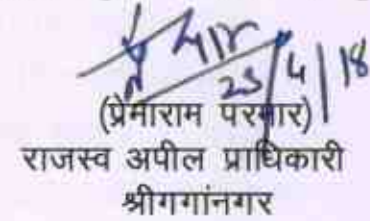 25/4/18
(प्रेमाराम परमार)
राजस्व अपील प्राधिकारी
श्रीगगांनगर